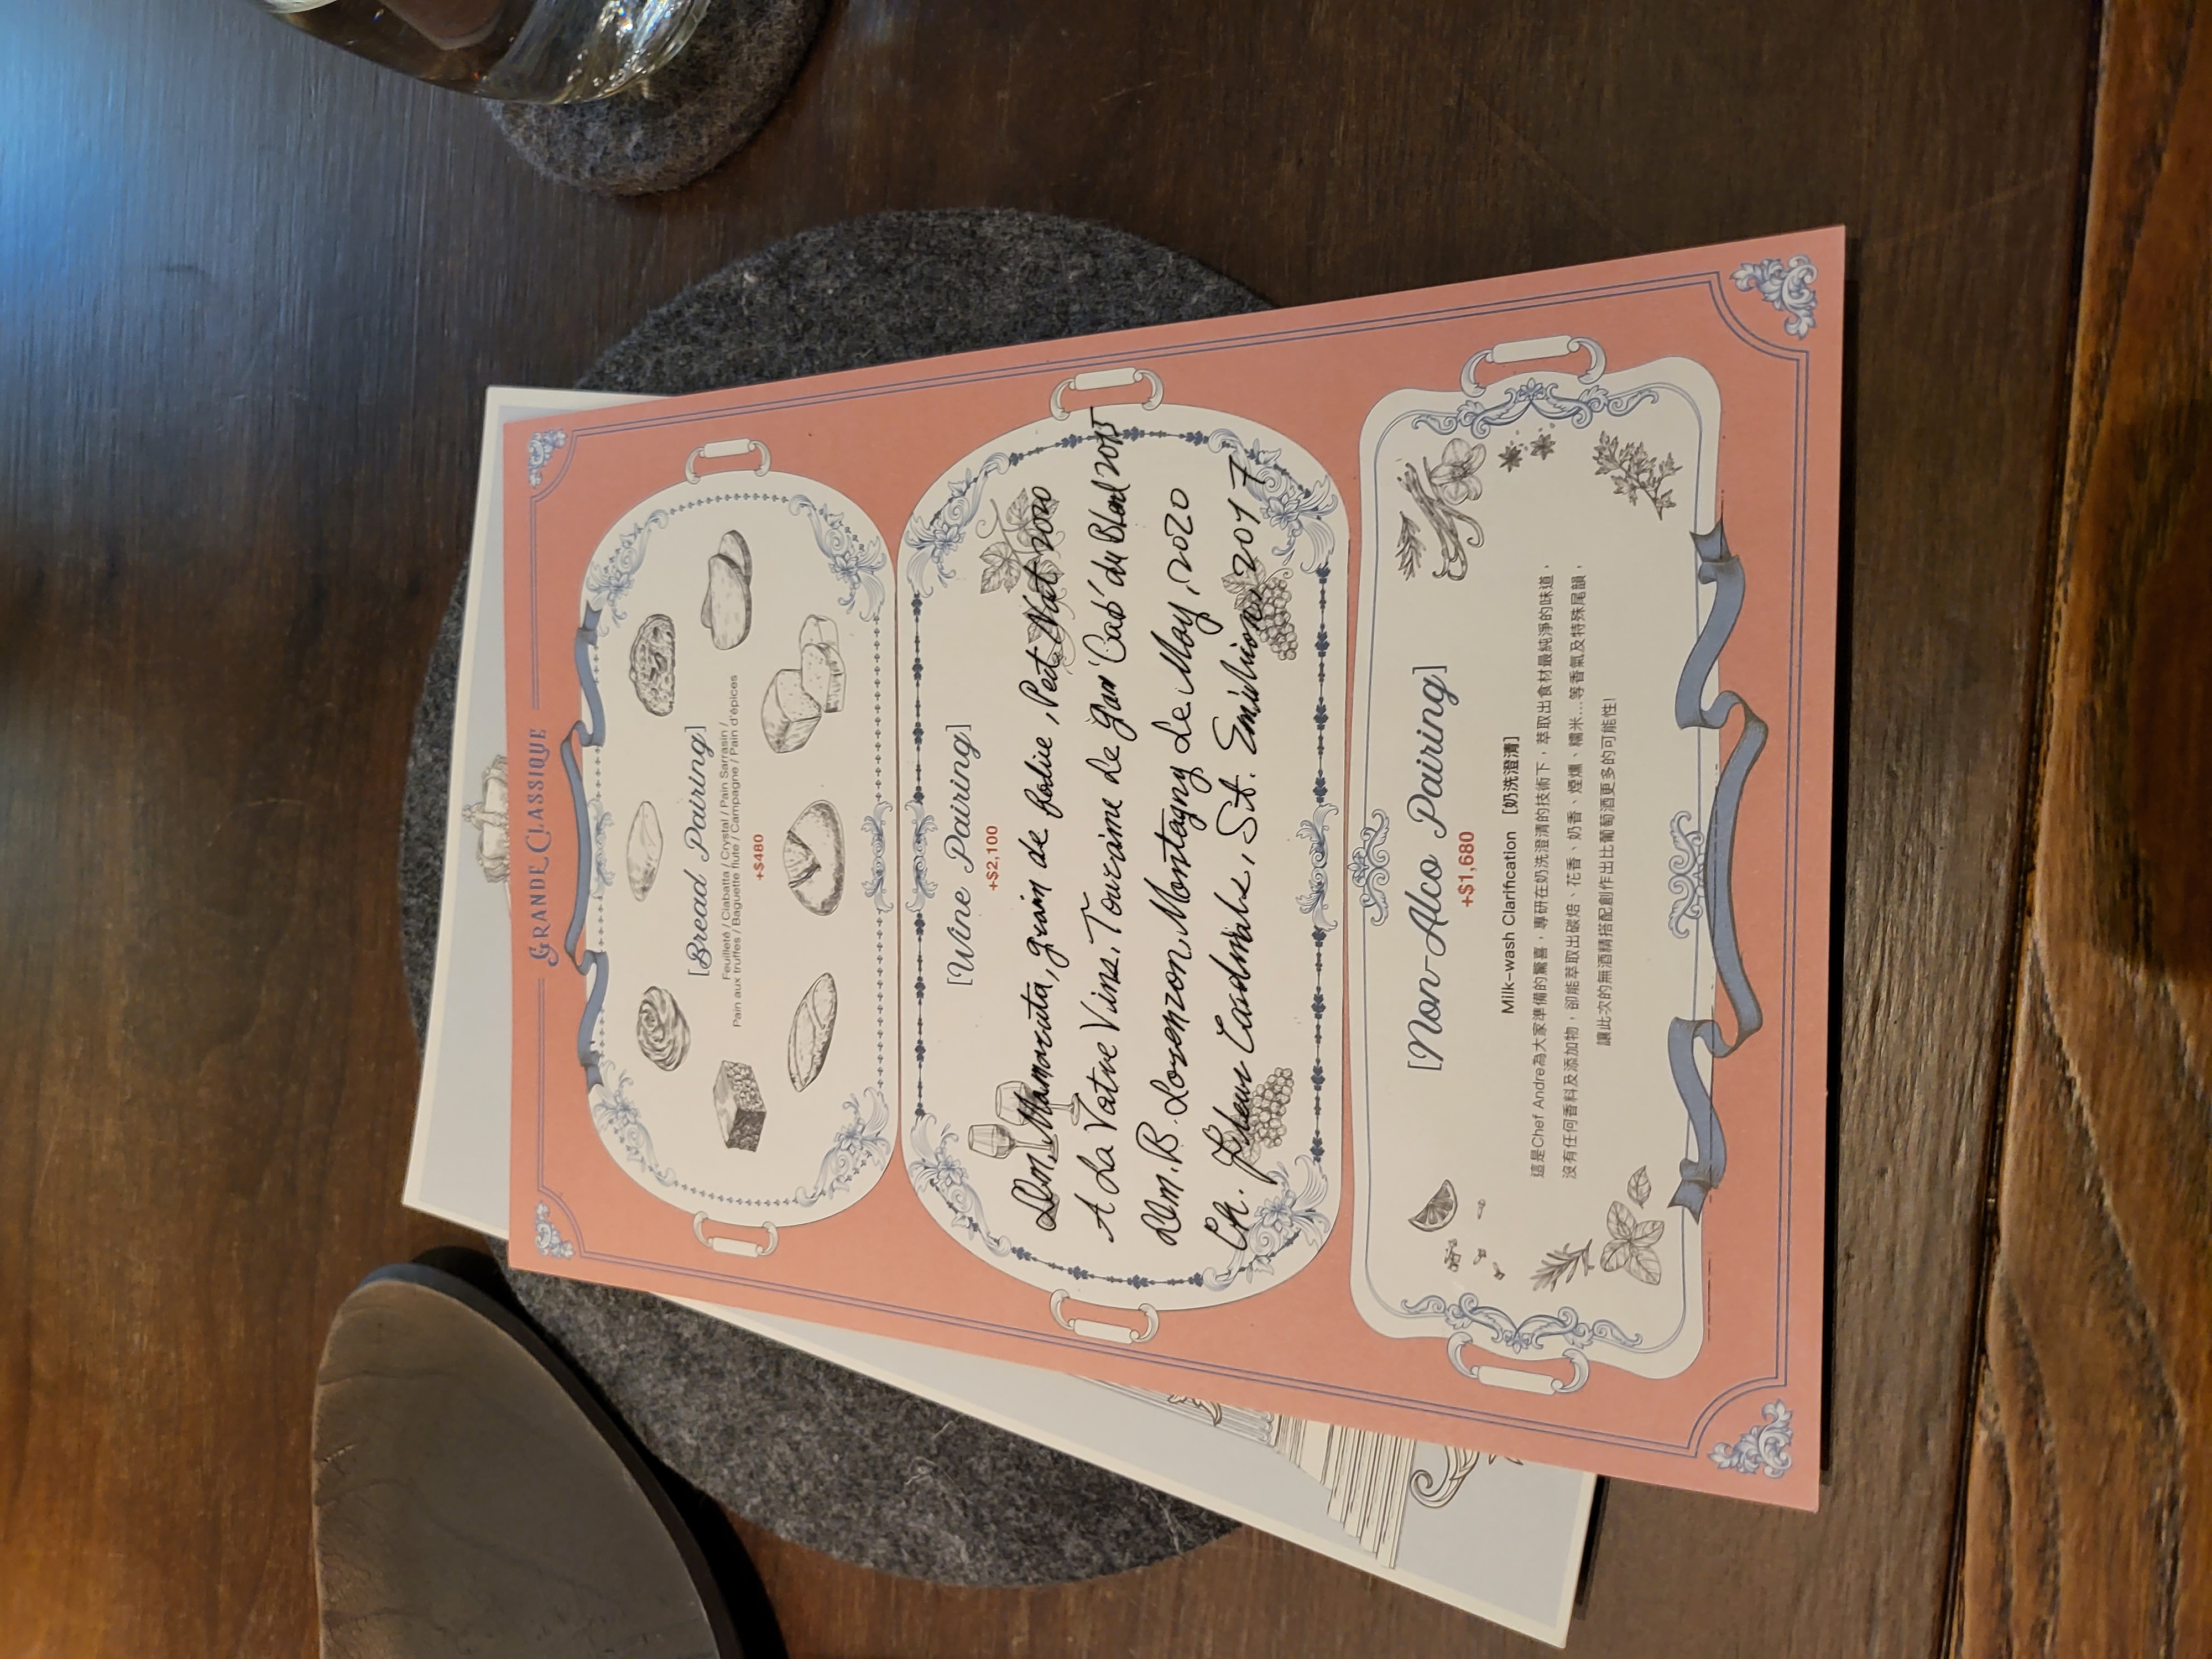 GRANDE CLASSIQUE
[Bread Pairing]
Feuilleté / Ciabatta / Crystal / Pain Sarrasin /
Pain aux truffes / Baguette flute / Campagne / Pain d'épices
+$480
[Wine Pairing]
+$2,100
Dm, Mamaruta, grain de folie, Pet Nat 2020
A La Votre Vins, Touraine Le Gar 'Cab' du 2015
Dm. B. Lorenzon, Montagny Le May, 2020
Ch. Fleur Cardinale, St. Emilion, 2017
[Non-Alco Pairing]
+$1,680
Milk-wash Clarification [奶洗澄清]
這是Chef Andre為大家準備的驚喜，專研在奶洗澄清的技術下，萃取出食材最純淨的味道，
沒有任何香料及添加物，卻能萃取出碳焙、花香、奶香、煙燻、糯米...等香氣及特殊尾韻，
讓此次的無酒精搭配創作出比葡萄酒更多的可能性!